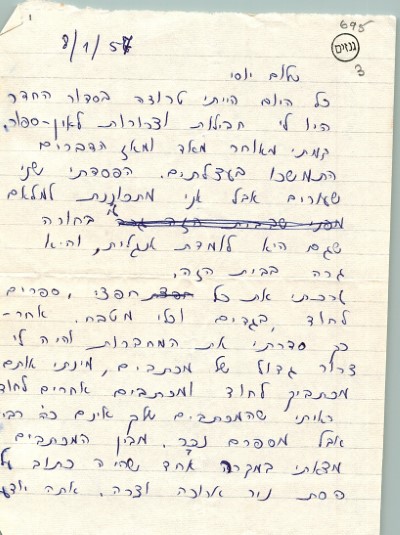 695
גנזים
3
8/1/57
שלום יוסי
כל היום הייתי טרודה בסדור החדר
היו לי חבילות וצרורות לאין-ספור,
קמתי מאוחר מאד ומאז הדברים
התמשכו בעצלתים. הפסדתי שני
שעורים אבל אני מתכוננת למלאם
בחורה
שגם היא לומדת אנגלית, והיא
גרה בבית הזה.
ארזתי את כל חפצי, ספרים
לחוד, בגדים וכלי מטבח. אחר-
כך סדרתי את המחברות והיה לי
צרור גדול של מכתבים, מינתי אותם
מכתביך לחוד ומכתבים אחרים לחוד
ראיתי שהמכתבים שלך אינם כה רבי
אבל מספרם נכר. מבין המכתבים
מצאתי במקרה אחד שהיה כתוב על
פסת ניר ארוכה וצרה. אתה יודע